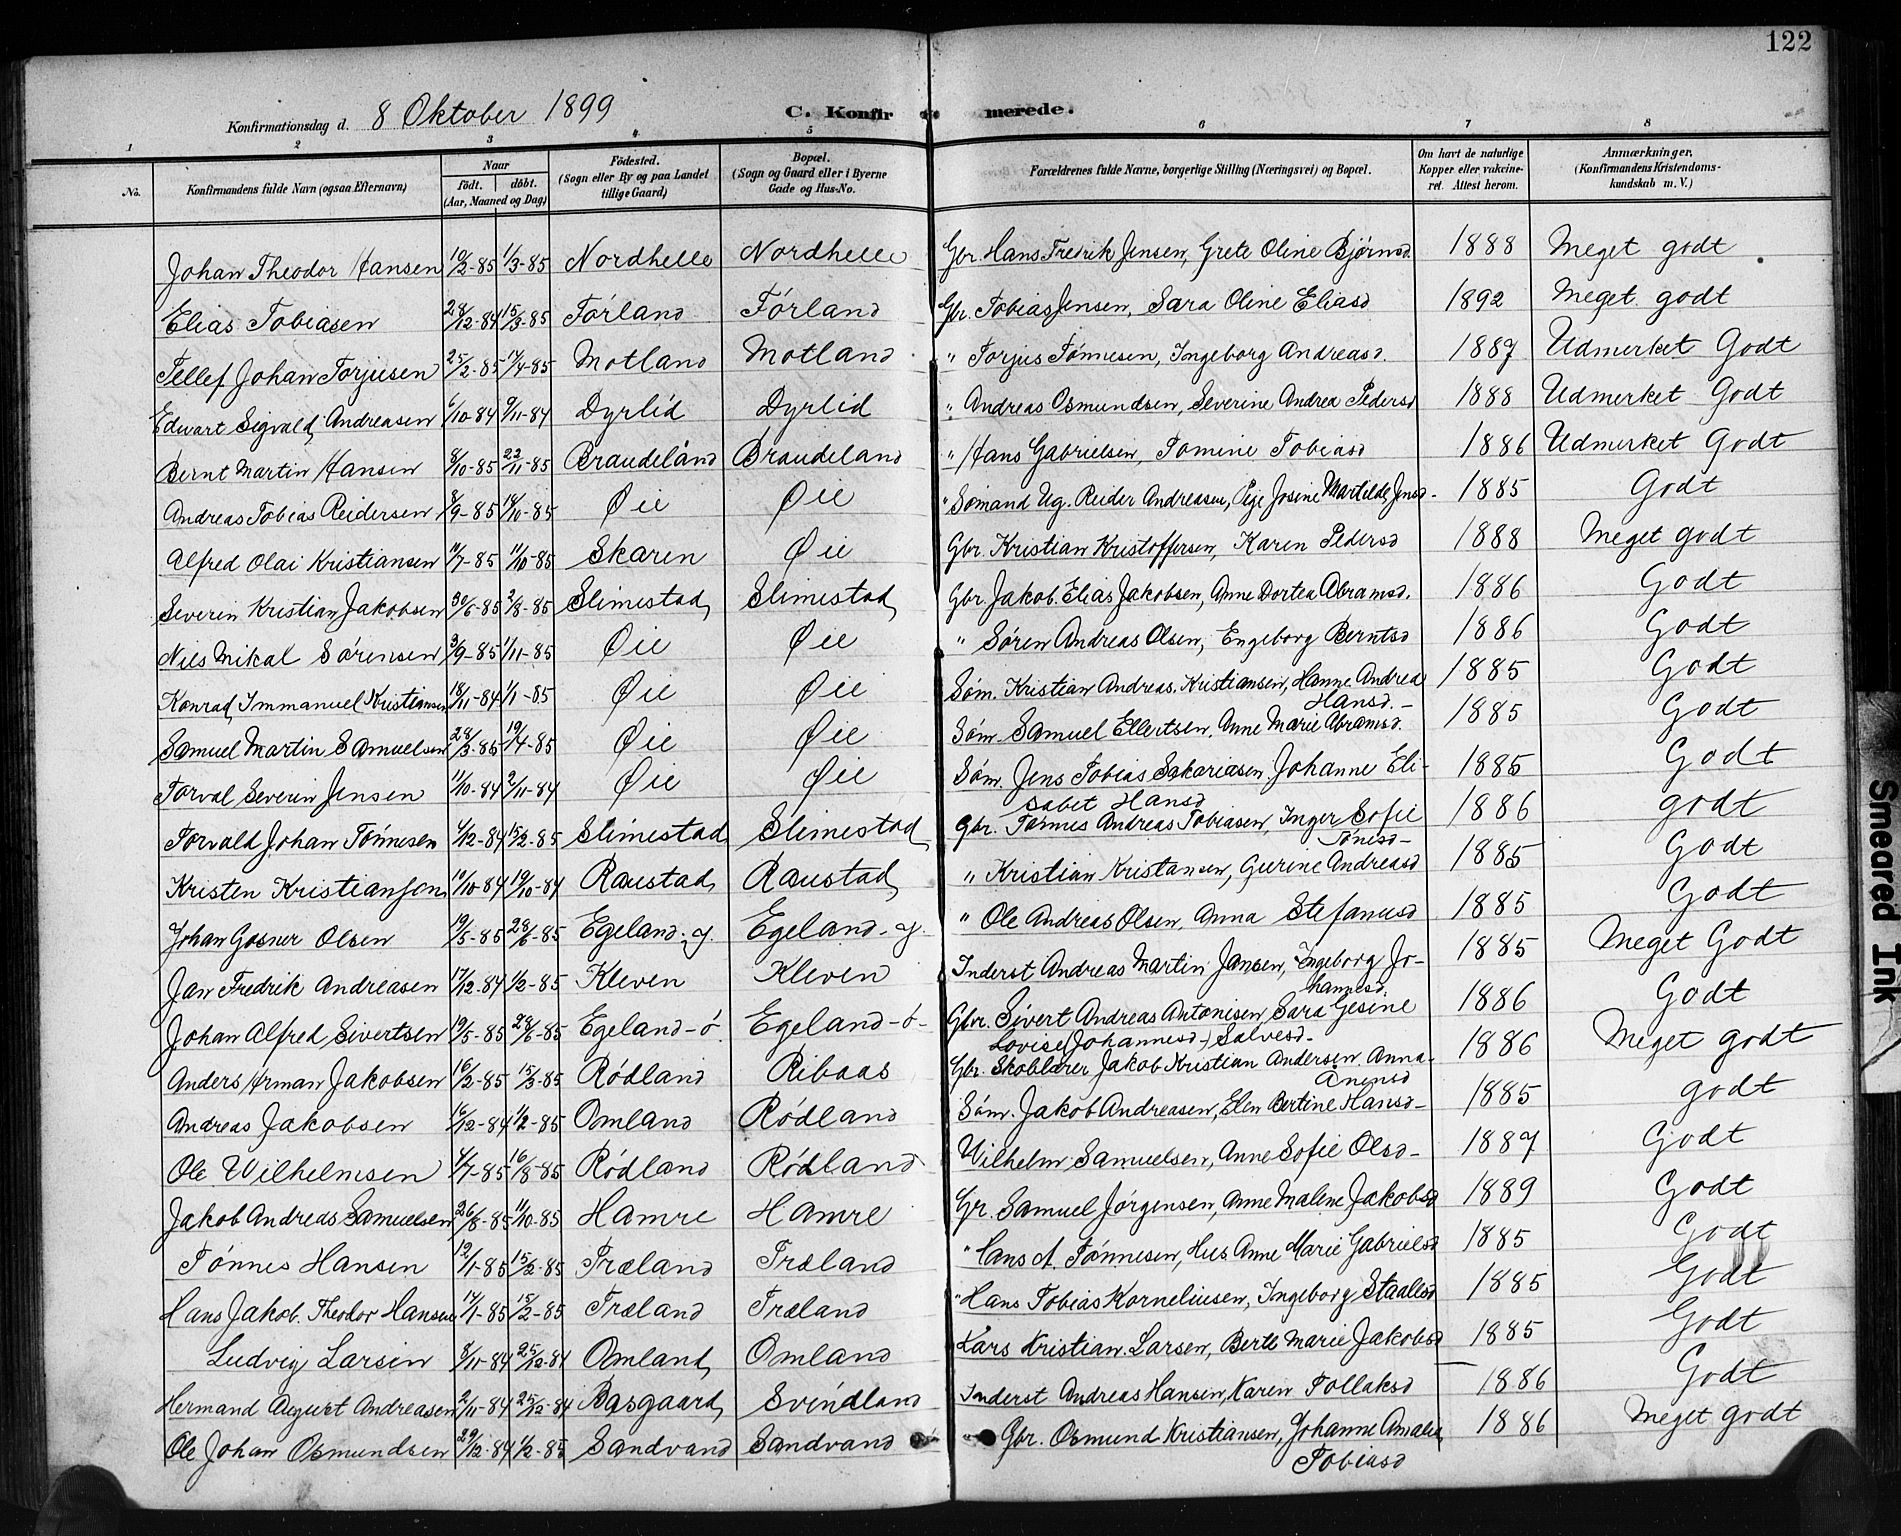 122
Konfirmationsdag d. 8 Oktober 1899 C. Konfirmerede.
1 2 3 4 5 6 7 8
No. Konfirmandens fulde Navn (ogsaa Efternavn) Naar født. døbt. (Aar, Maaned og Dag) Födested. (Sogn eller By og paa Landet tillige Gaard) Bopæl. (Sogn og Gaard eller i Byerne Gade og Hus-No. Forældrenes fulde Navne, borgerlige Stilling (Næringsvei) og Bopæl. Om havt de naturlige Kopper eller vakcineret. Attest herom. Anmærkninger. (Konfirmandens Kristendomskundskab m. V.)
Johan Theodor Hansen 10/2-85 1/3-85 Nordhelle Nordhelle Gbr. Hans Fredrik Jensen, Grete Oline Bjørnsd. 1888 Meget godt
Elias Tobiasen 28/12-84 15/3-85 Førland Førland Gbr. Tobias Jensen, Sara Oline Eliasd 1892 Meget godt
Tellef Johan Torjusen 25/2-85 17/4-85 Motland Motland " Torjus Tønnesen, Ingeborg Andreasd. 1887 Udmerket Godt
Edvart Sigvald Andreasen 6/10-84 9/11-84 Dyrlid Dyrlid " Andreas Osmundsen, Severine Andrea Pedersd 1888 Udmerket Godt
Bernt Martin Hansen 8/10-85 22/11-85 Braudeland Braudeland " Hans Gabrielsen, Tomine Tobiasd 1886 Udmerket Godt
Andreas Tobias Reidersen 8/9-85 18/10-85 Øie Øie " Sømand Ug. Reider Andreasen, Pige Josine Martilde Jensd- 1885 Godt
Alfred Olai Kristiansen 11/7-85 11/10-85 Skaren Øie Gbr. Kristian Kristoffersen, Karen Pedersd 1888 Meget godt
Severin Kristian Jakobsen 30/6-85 2/8-85 Slimestad Slimestad Gbr. Jakob Elias Jakobsen, Anne Dortea Abramsd. 1886 Godt
Nils Mikal Sørensen 3/9-85 1/11-85 Øie Øie " Søren Andreas Olsen, Engeborg Berntsd 1886 Godt
Konrad Immanuel Kristiansen 18/11-84 1/1-85 Øie Øie Søm. Kristian Andreas Kristiansen, Hanne Andrea 1885 Godt
Hansd.-
Samuel Martin Samuelsen 28/3-85 19/4-85 Øie Øie Søm. Samuel Ellertsen, Anne Marie Abramsd. 1885 Godt
Torval Severin Jensen 11/10-84 2/11-84 Øie Øie Søm. Jens Tobias Sakariasen, Johanne Eli- 1885 Godt
sabet Hansd
Torvald Johan Tønnesen 4/12-84 15/2-85 Slimestad Slimestad Gbr. Tørnes Andreas Tobiasen, Inger Sofie 1886 godt
Tønesd-
Kristen Kristiansen 10/10-84 19/10-84 Raustad Raustad " Kristian Kristansen, Gurine Andreasd 1885 Godt
Johan Gosner Olsen 19/5-85 28/6-85 Egeland-y. Egeland-y. " Ole Andreas Olsen, Anna Stefanusd 1885 Godt
Jan Fredrik Andreasen 17/12-84 1/2-85 Kleven Kleven Inderst Andreas Martin Jansen, Ingeborg Jo- 1885 Meget Godt
hannesd.
Johan Alfred Sivertsen 19/5-85 28/6-85 Egeland-ø. Egeland-ø- Gbr. Sivert Andreas Antonisen, Sara Gesine 1886 Godt
Lovise (Johannesd-) Salvesd-
Anders Herman Jakobsen 16/2-85 15/3-85 Rødland Ribaas Gbr. Skolelærer Jakob Kristian Andersen, Anna- 1886 Meget godt
Ånensd
Andreas Jakobsen 16/12-84 1/2-85 Omland Rødland Søm. Jakob Andreasen, Elen Bertine Hansd- 1885 godt
Ole Wilhelmsen 4/7-85 16/8-85 Rødland Rødland Wilhelm Samuelsen, Anne Sofie Olsd- 1887 Godt
Jakob Andreas Samuelsen 26/8-85 11/10-85 Hamre Hamre Gr. Samuel Jørgensen, Anne Malene Jakobsd 1889 Godt
Tønnes Hansen 12/1-85 15/2-85 Træland Træland " Hans A. Tønnesen, Hus. Anne Marie Gabrielsd 1885 Godt
Hans Jakob Theodor Hansen 17/1-85 15/2-85 Træland Træland " Hans Tobias Korneliusen, Ingeborg Staalesd 1885 Godt
Ludvig Larsen 8/11-84 25/12-84 Omland Omland Lars Kristian Larsen, Berte Marie Jakobsd 1885 Godt
Hermand August Andreasen 2/11-84 25/12-84 Basgaard Svindland Inderst Andreas Hansen, Karen Tollaksd 1886 Godt
Ole Johan Osmundsen 29/12-84 1/2-85 Sandvand Sandvand " Gbr. Osmund Kristiansen, Johanne Amalia 1886 Meget godt
Tobiasd
Smeared Ink